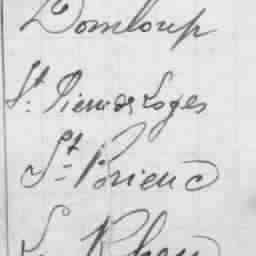 Domloup
St. Pierre des Loges
St. Brieuc
Le Rheu